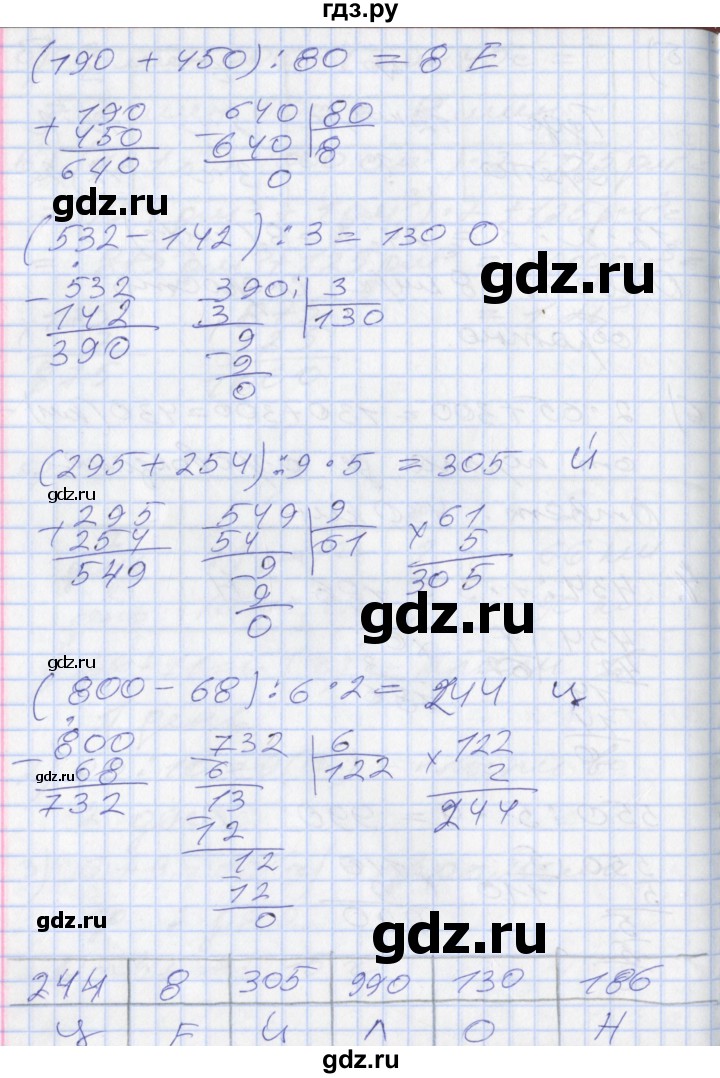 гдз.ру
(190 + 450) : 80 = 8 Е
+ 190 - 640 | 80
450 640 8
640 0
gdz.ru
(532 - 142) : 3 = 130 О
- 532 - 390 | 3
142 3 130
390 - 9
9
0
gdz.ru
(295 + 254) : 9 · 5 = 305 Й
gdz.ru
+ 295 - 549 | 9 × 61
254 54 61 5
549 - 9 305
9
0
gdz.ru
gdz.ru
(800 - 68) : 6 · 2 = 244 Ц
- 800 - 732 | 6 × 122
68 6 122 2
gdz.ru
732 13 244
- 12
12
- 12
0
gdz.ru
gdz.ru
244 8 305 990 130 186
Ц Е Й Л О Н
gdz.ru
gdz.ru